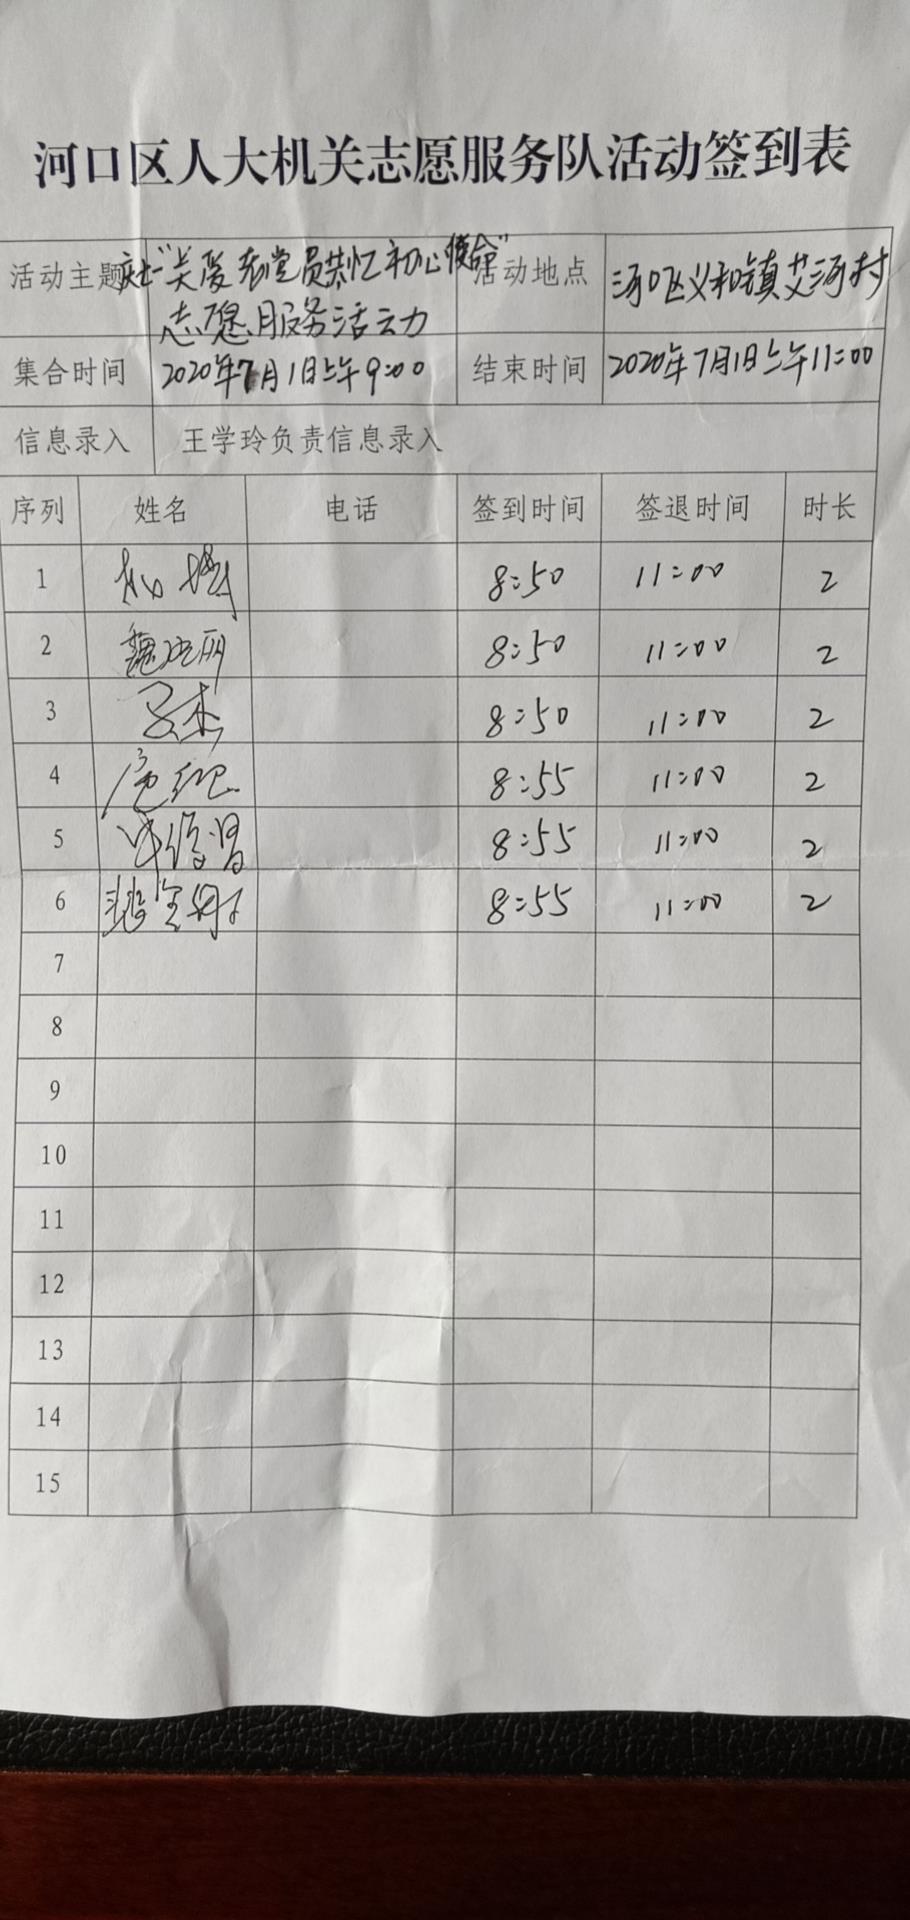 河口区人大机关志愿服务队活动签到表
活动主题 庆七一"关爱老党员共忆初心使命" 活动地点 河口区义和镇艾河村
志愿服务活动
集合时间 2020年7月1日上午9:00 结束时间 2020年7月1日上午11:00
信息录入 王学玲负责信息录入
序列 姓名 电话 签到时间 签退时间 时长
1 8:50 11:00 2
2 8:50 11:00 2
3 8:50 11:00 2
4 8:55 11:00 2
5 8:55 11:00 2
6 8:55 11:00 2
7
8
9
10
11
12
13
14
15